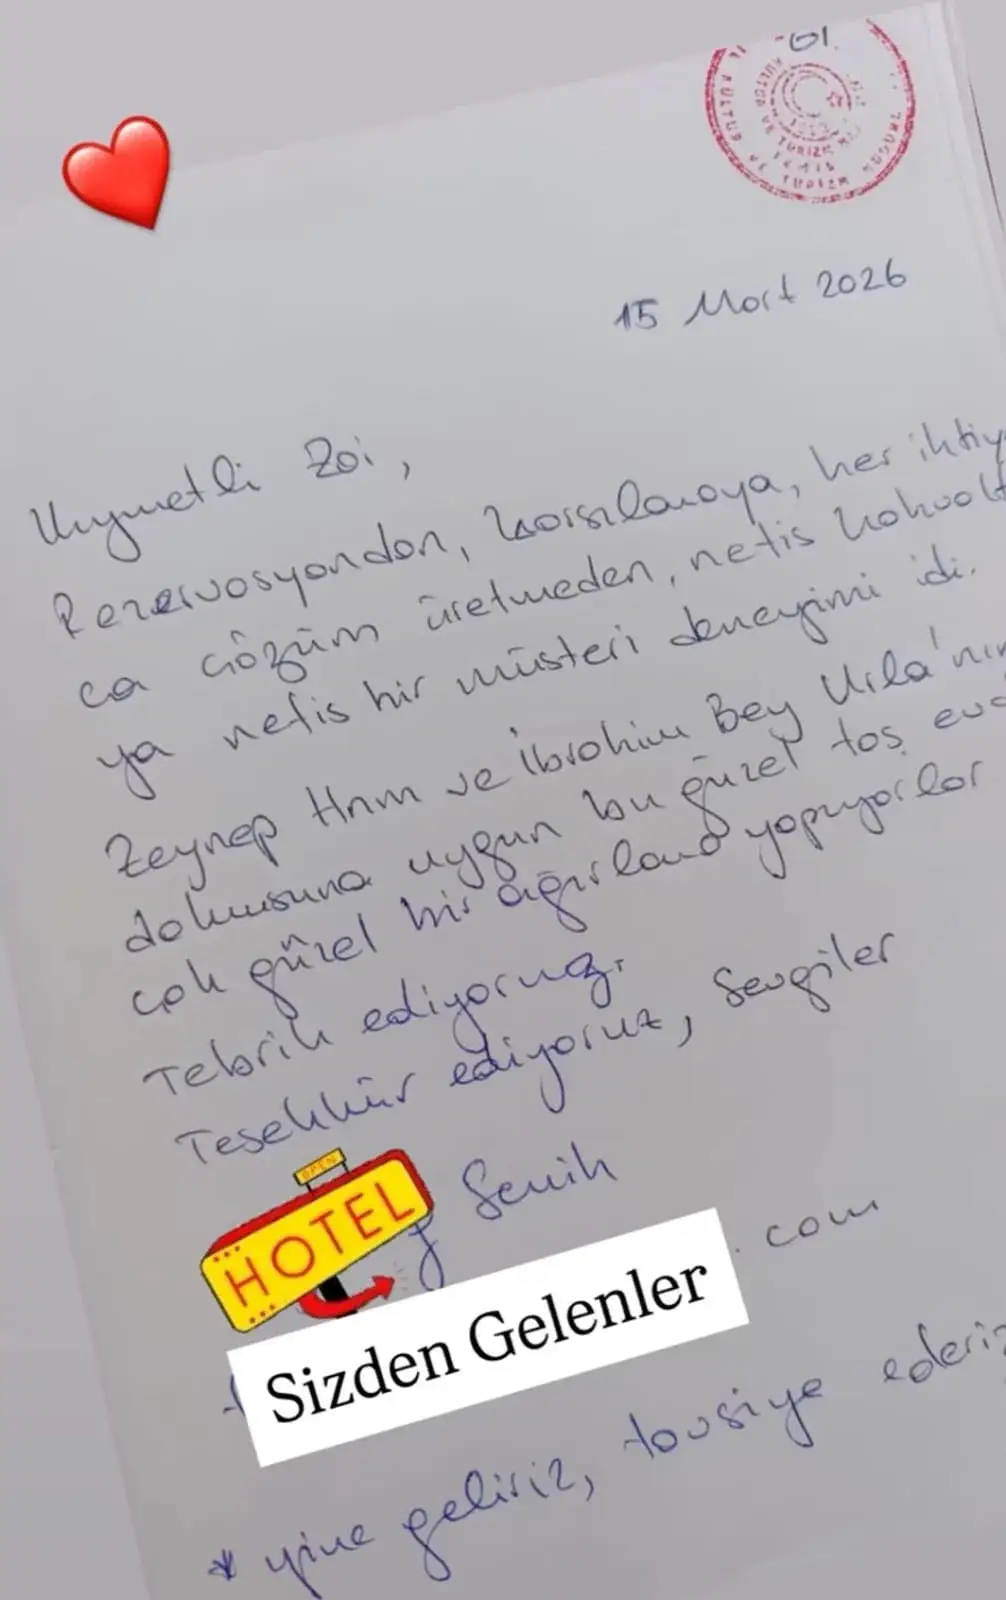 01.
KÜLTÜR VE TURİZM
15 Mart 2026
Kıymetli Zoi,
Rezervasyondan, karşılamaya, her ihtiy
ca çözüm üretmeden, nefis kahvalt
ya nefis bir müşteri deneyimi idi.
Zeynep Hnm ve İbrahim Bey Urla'nın
dokusuna uygun bu güzel taş evd
çok güzel bir ağırlama yapıyorlar
Tebrik ediyoruz.
Teşekkür ediyoruz, Sevgiler
OPEN
HOTEL
Semih
.com
Sizden Gelenler
* yine geliriz, tavsiye ederiz